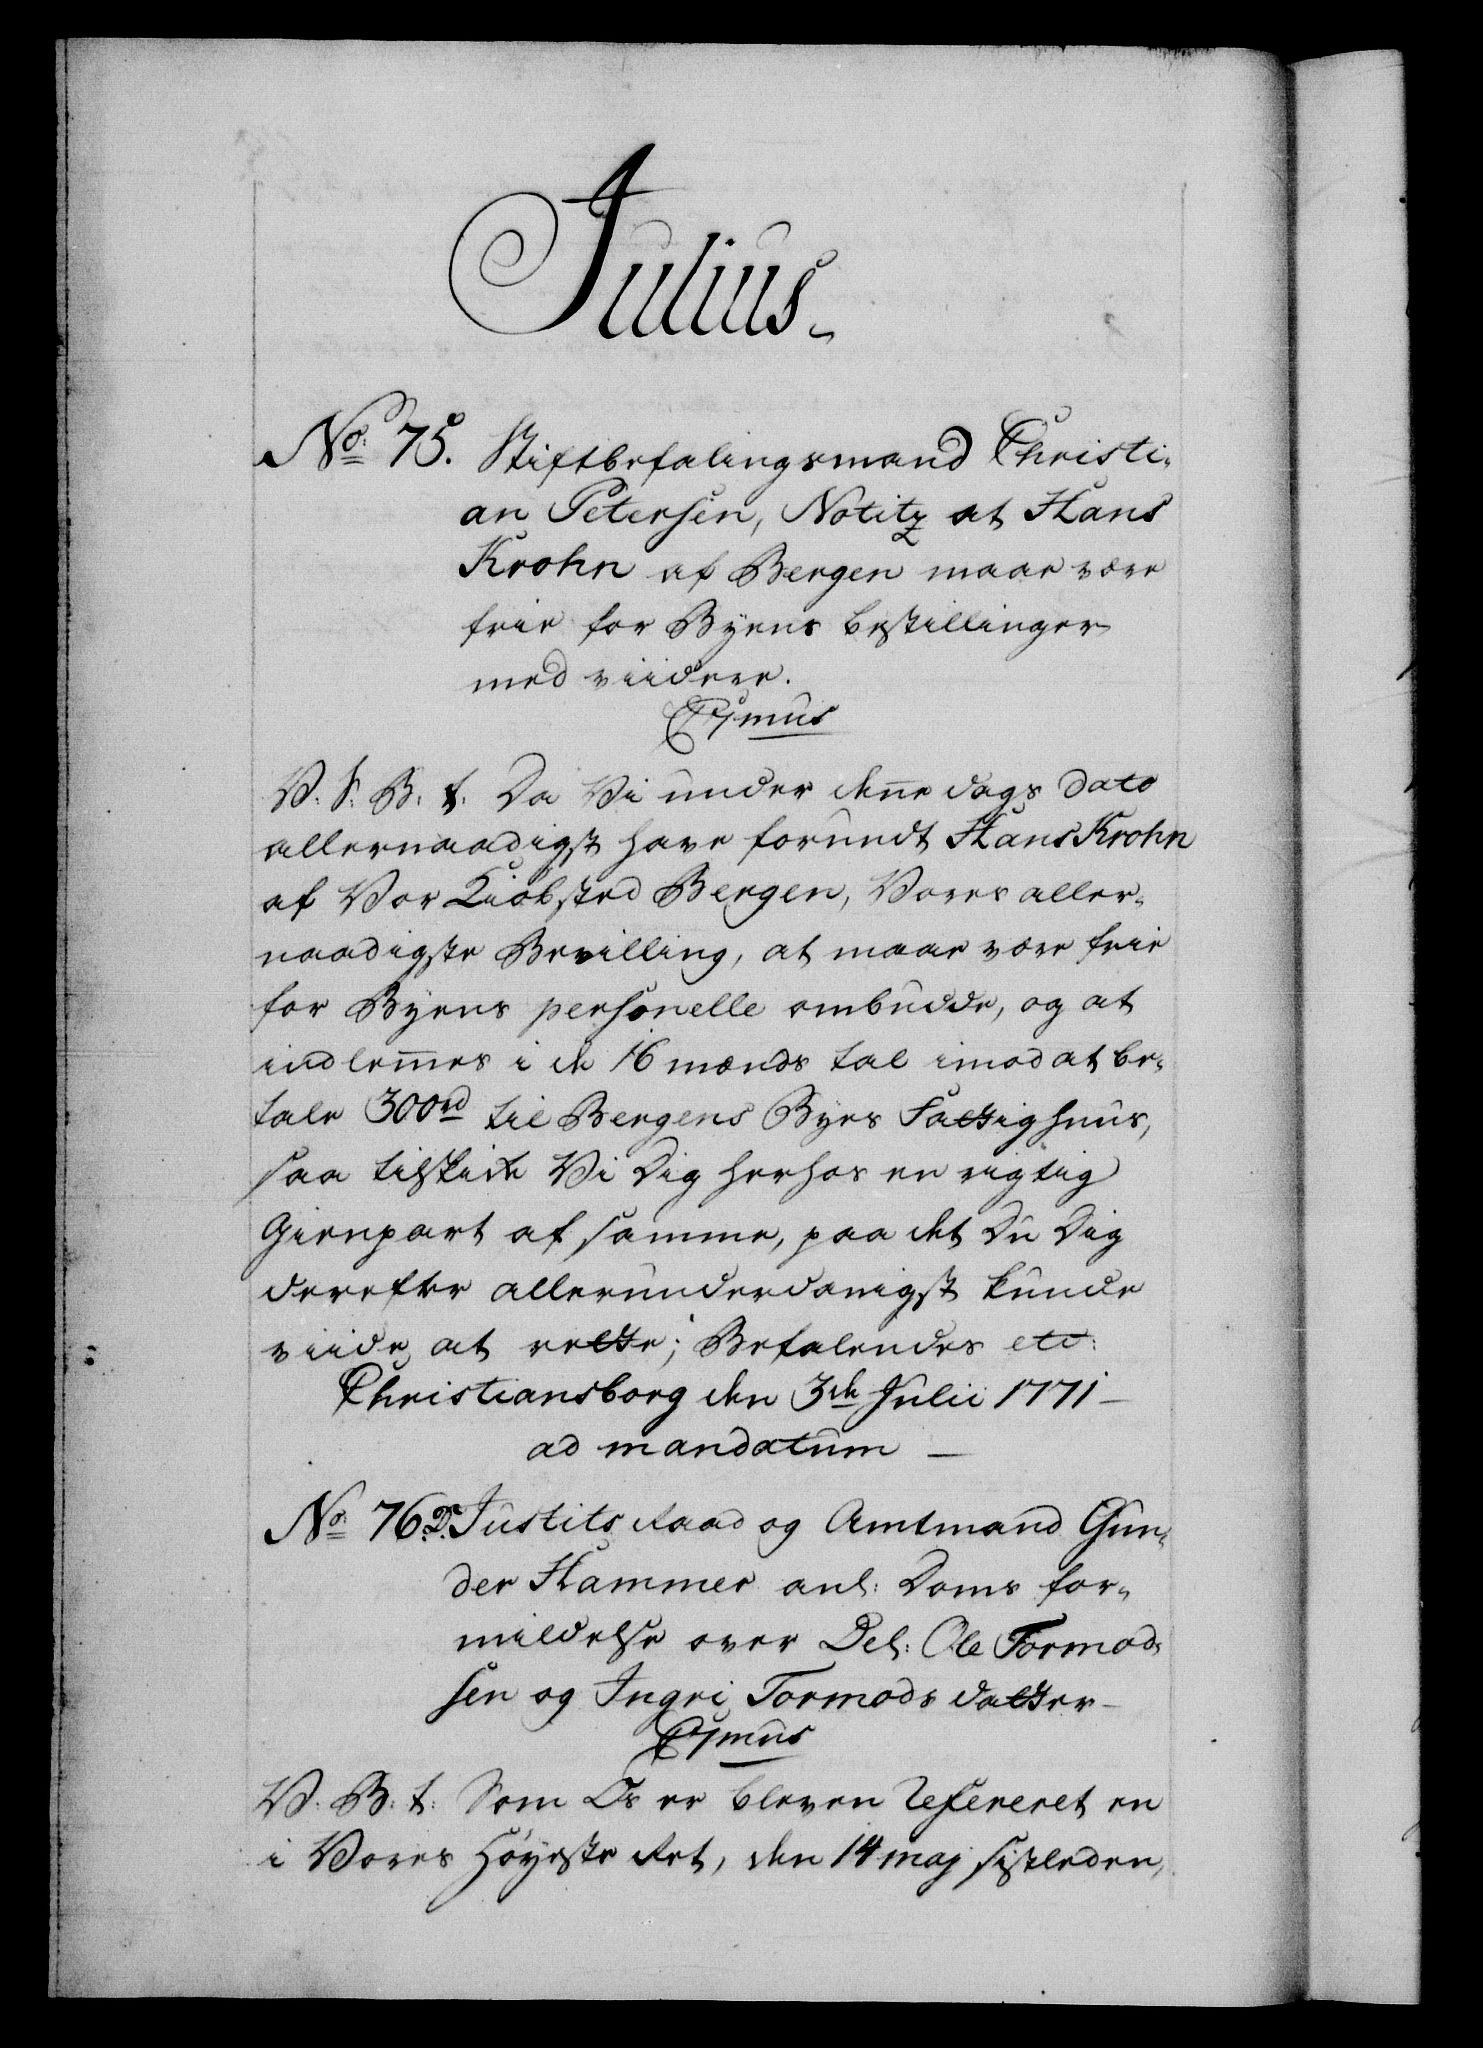 Julius.
No. 75. Stiftbefalingsmand Christi-
an Petersen, Notitz at Hans
Krohn af Bergen maae være
frie for Byens bestillinger
med viidere.
C7mus
V. S. B. t. Da Vi under denne dags dato
allernaadigst have forundt Hans Krohn
af Vor Kiobsted Bergen, Vores aller-
naadigste Bevilling, at maae være frie
for Byens personelle ombudde, og at
indlemmes i de 16 mænds tal imod at be-
tale 300 rd til Bergens Byes Fattighuus,
saa tilskikke Vi Dig herhos en rigtig
Gienpart af samme, paa det Du Dig
derefter allerunderdanigst kunde
viide at rette; Befalendes etc:
Christiansborg den 3de Julii 1771
ad mandatum
No. 76. D. Justits Raad og Amtmand Gun-
der Hammer anl: Doms for-
mildelse over Del: Ole Tormod-
sen og Ingri Tormods datter
C7mus
V. B. t: Som Os er bleven refereret en
i Vores Høyeste Ret, den 14 maj sistleden,